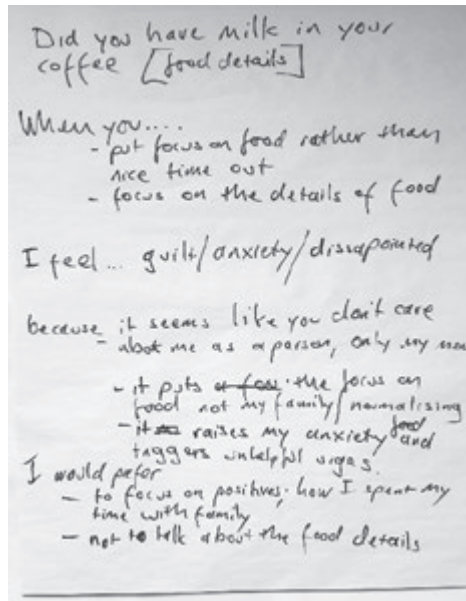 Did you have milk in your
coffee [food details]
When you....
- put focus on food rather than
nice time out
- focus on the details of food
I feel... guilt/anxiety/dissapointed
because it seems like you don't care
- abot me as a person, only my
- it puts the focus on
food not my family/normalising
food
- it raises my anxiety and
triggers unhelpful urges.
I would pefer
- to focus on positives, how I spent my
time with family
- not to talk about the food details